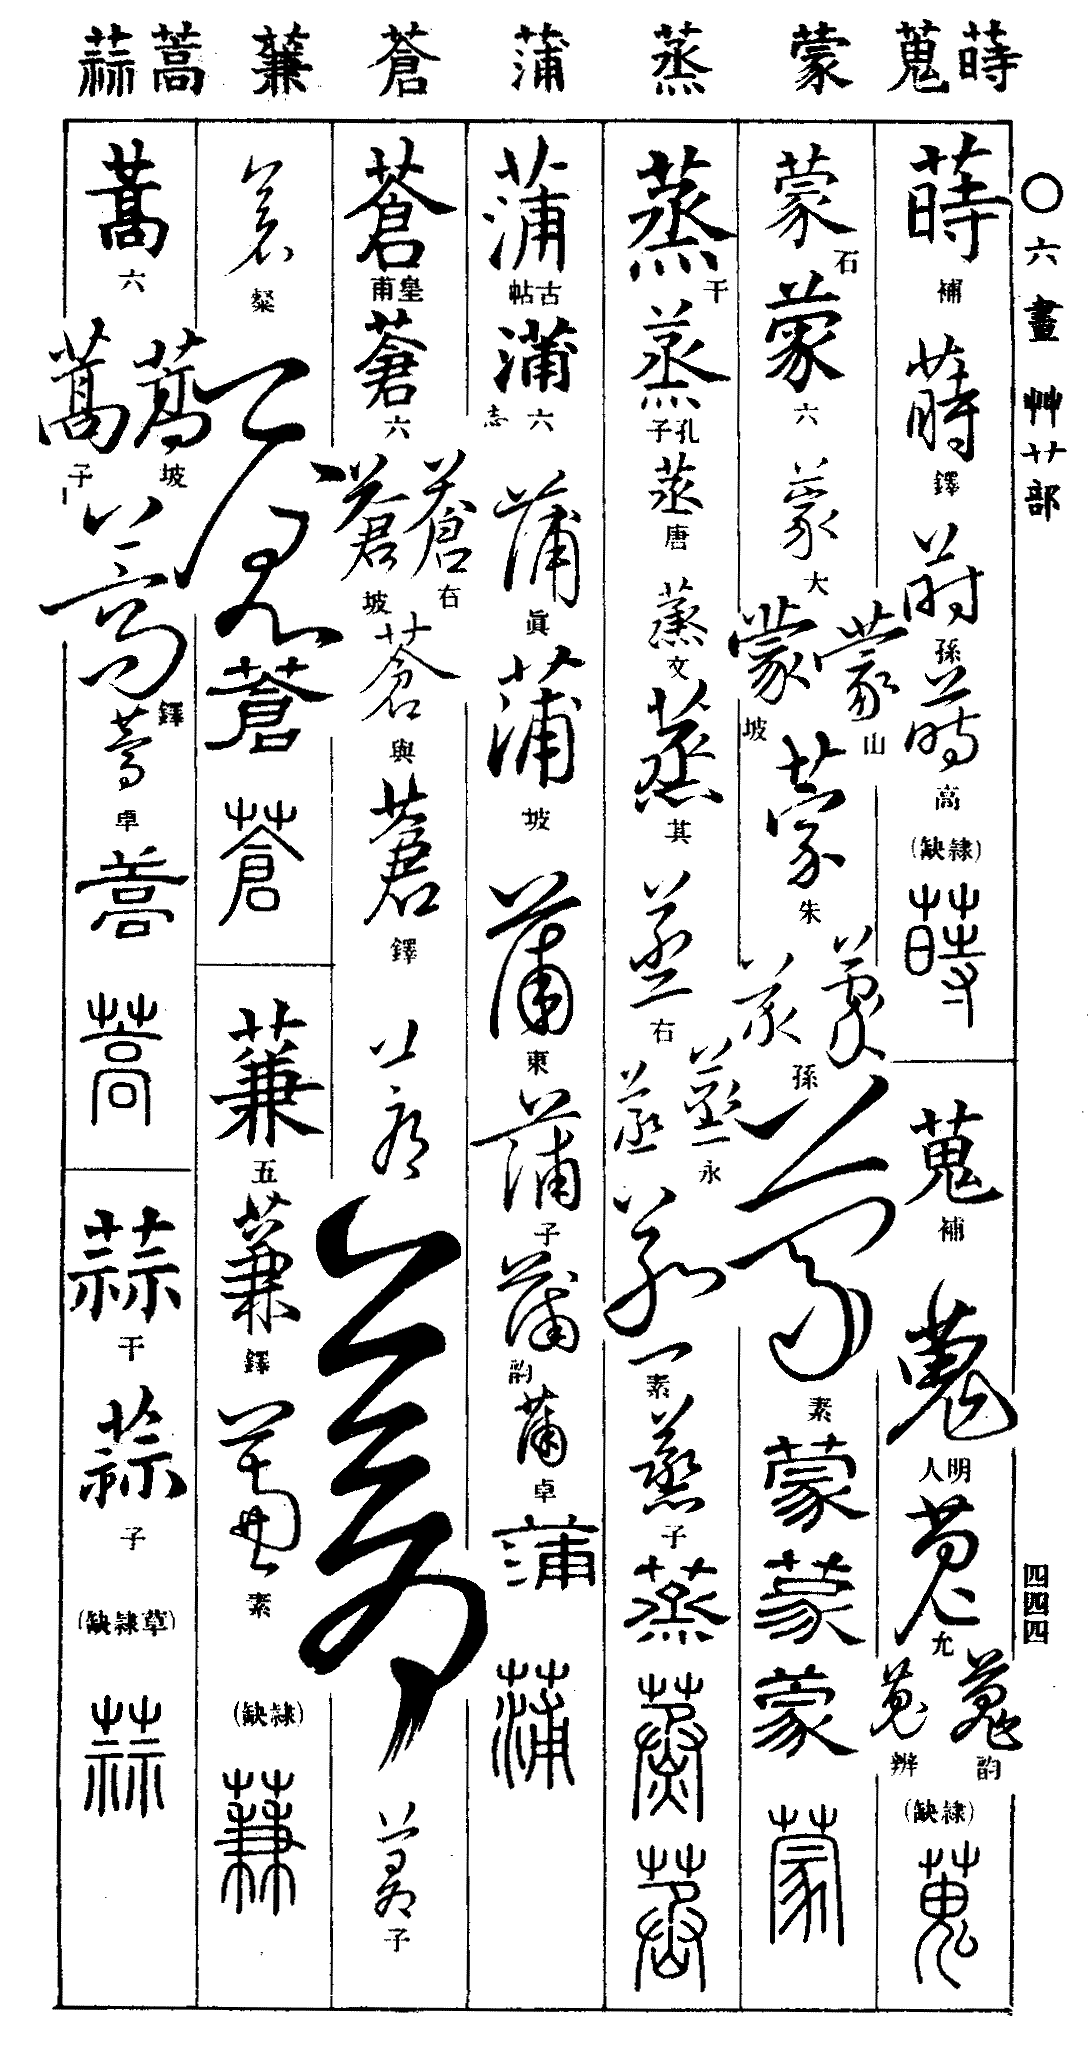 蒔 蒐 蒙 蒸 蒲 蒼 蒹 蒿 蒜
〇六畫 艸艹部
四四四
蒔 補
蒔 鐸
蒔 孫
蒔 高
(隸缺)
蒔
蒐 補
蒐 明人
蒐 允
蒐 韵
蒐 辨
(隸缺)
蒐
蒙 石
蒙 六
蒙 大
蒙 山
蒙 坡
蒙 朱
蒙 蒙 孫
蒙 素
蒙
蒙
蒙
蒙
蒸 干
蒸 孔子
蒸 唐
蒸 文
蒸 其
蒸 右
蒸 蒸 永
蒸 素
蒸 子
蒸
蒸
蒸
蒲 古帖
蒲 六
志
蒲 眞
蒲 坡
蒲 東
蒲 子
蒲 韵
蒲 卓
蒲
蒲
蒼 皇甫
蒼 六
蒼 右
蒼 坡
蒼 與
蒼 鐸
蒼
蒼
蒼 子
蒼 粲
蒼
蒼
蒼
蒹 五
蒹 鐸
蒹 素
(隸缺)
蒹
蒿 六
蒿 坡
蒿 子
蒿 鐸
蒿 卓
蒿
蒿
蒜 干
蒜 子
(草隸缺)
蒜